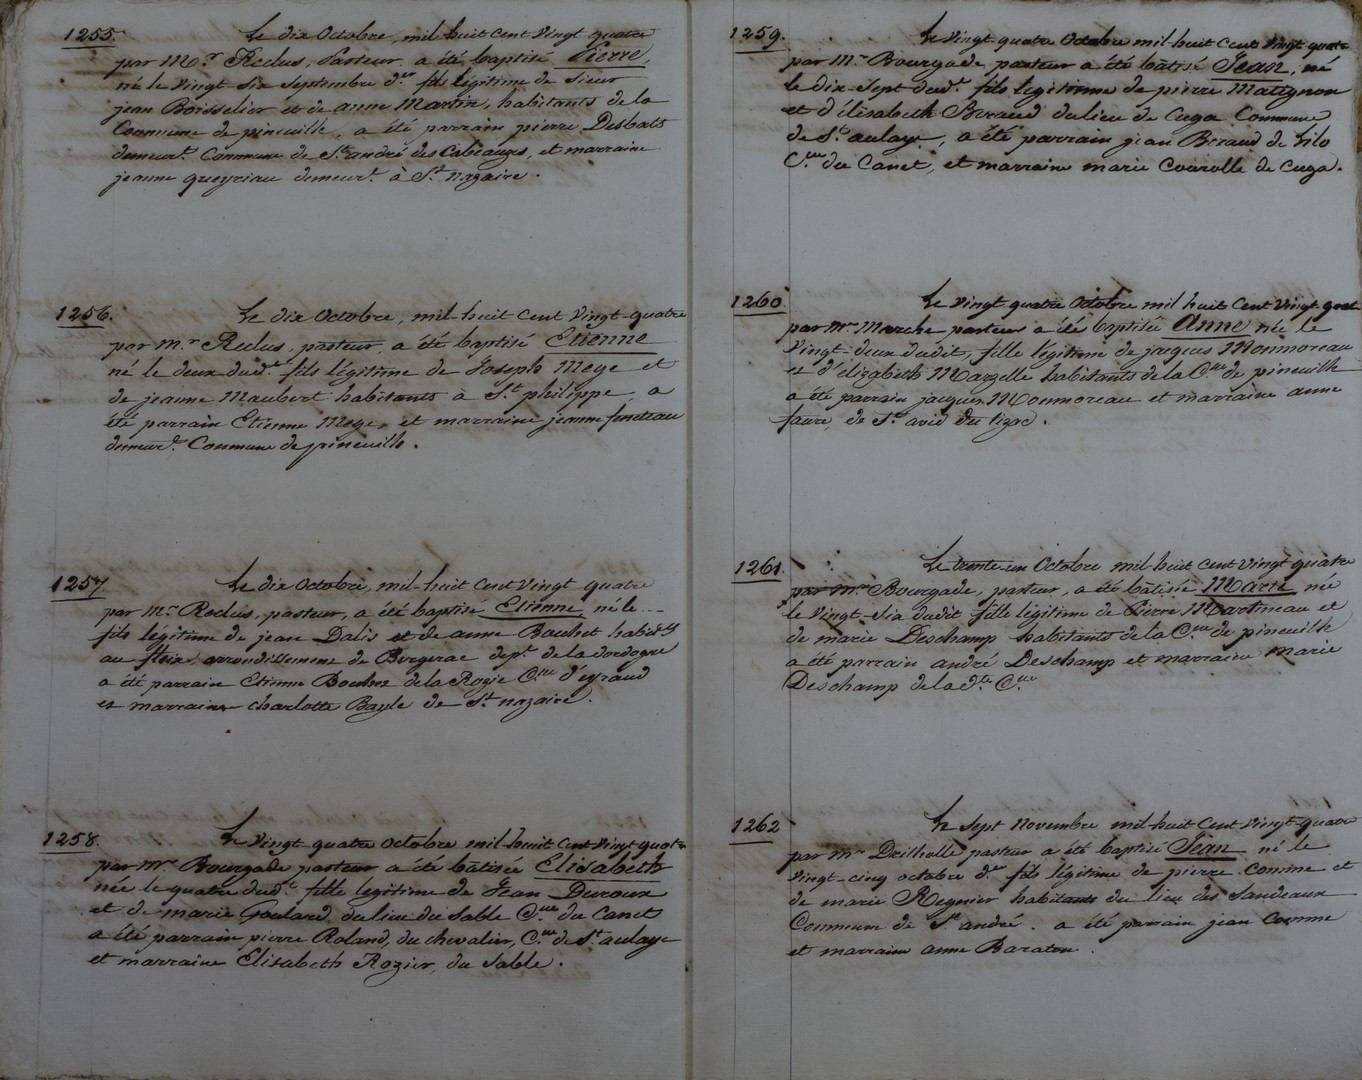 1255.
Le dix Octobre, mil huit Cent Vingt quatre
par M.r Reclus, Pasteur, a été baptisé Pierre,
né le Vingt-six Septembre d.er fils légitime de Sieur
jean Boisselier et de anne Martin, habitants de la
Commune de pineuilh, a été parrain pierre Desbats
demeur.t Commune de St. andré des Cabeauzes, et marraine
jeanne queyriau demeur.t à St. nazaire.
1256.
Le dix Octobre, mil-huit Cent Vingt-quatre
par m.r Reclus, pasteur, a été baptisé Etienne
né le deux dud.t fils légitime de Joseph Mege et
de jeanne Maubert habitants à St. philippe, a
été parrain Etienne Mege, et marraine jeanne
demeur.t Commune de pineuilh.
1257
Le dix Octobre, mil-huit Cent Vingt quatre
par m.r Reclus, pasteur, a été baptisé Etienne né le ...
fils légitime de jean Dalis et de anne Bauhet habit.ts
au fleix, arrondissement de Bergerac dep.t de la dordogne
a été parrain Etienne de la Rozie C.ne d'eyraud
et marraine charlotte Bayle de St. nazaire.
1258.
Le Vingt quatre Octobre mil-huit Cent Vingt-quatre
par m.r Bourgade pasteur a été bâtisée Elisabeth
née le quatre dud.t fille légitime de Jean Duroux
et de marie Goulard du lieu du Sable C.ne du Canet
a été parrain pierre Roland, du chevalier, C.ne de St. aulaye
et marraine Elisabeth Rozier, du Sable.
1259.
Le Vingt quatre Octobre mil-huit Cent Vingt-quatre
par m.r Bourgade, pasteur a été bâtisé Jean, né
le dix-Sept dud.t fils légitime de pierre Matignon
et d'élisabeth Beraud du lieu de Cuga Commune
de St. aulaye, a été parrain jean Beraud de
C.ne du Canet, et marraine marie Courolle de Cuga.
1260.
Le Vingt quatre Octobre mil huit Cent Vingt quatre
par m.r Marche pasteur a été baptisée Anne née le
Vingt-deux dudit, fille légitime de jacques Monmoreau
et d'élizabeth Marzelle habitants de la C.ne de pineuilh
a été parrain jacques Monmoreau et marraine anne
faure, de St. avid du tizac.
1261.
Le trente-un Octobre mil huit Cent Vingt quatre
par m.r Bourgade, pasteur, a été bâtisée Marie née
le Vingt-Six dudit fille légitime de Pierre Martineau et
de marie Deschamp habitants de la C.ne de pineuilh
a été parrain andré Deschamp et marraine marie
Deschamp de la d.te C.ne
1262
Le Sept Novembre mil-huit Cent Vingt-quatre
par m.r Drilholle pasteur a été baptisé Jean né le
Vingt-cinq octobre d.er fils légitime de pierre Comme et
de marie Regnier habitants du lieu des Sandeaux
Commune de St. andré. a été parrain jean Comme
et marraine anne Baraton.